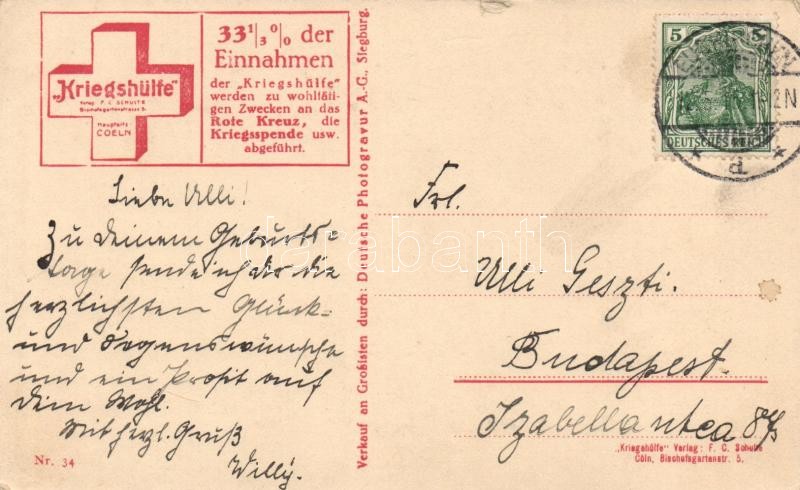 "Kriegshülfe"
Verlag F. C. SCHULTE
Bischofsgartenstrasse 5.
Hauptsitz
COELN
33⅓% der
Einnahmen
der „Kriegshülfe"
werden zu wohltäti-
gen Zwecken an das
Rote Kreuz, die
Kriegsspende usw.
abgeführt.
Liebe Ulli!
Zu deinem Geburts-
tage sende ich dir die
herzlichsten Glück-
und Segenswünsche
und ein Prosit auf
dein Wohl.
Mit herzl. Gruß
Willy.
Nr. 34
Verkauf an Großisten durch: Deutsche Photogravur A.-G., Siegburg.
5 5
DEUTSCHES REICH
2N
* d *
Frl.
Ulli Geszti.
Budapest.
Izabella utca
„Kriegshülfe" Verlag: F. C. Schulte
Cöln, Bischofsgartenstr. 5.
darabanth